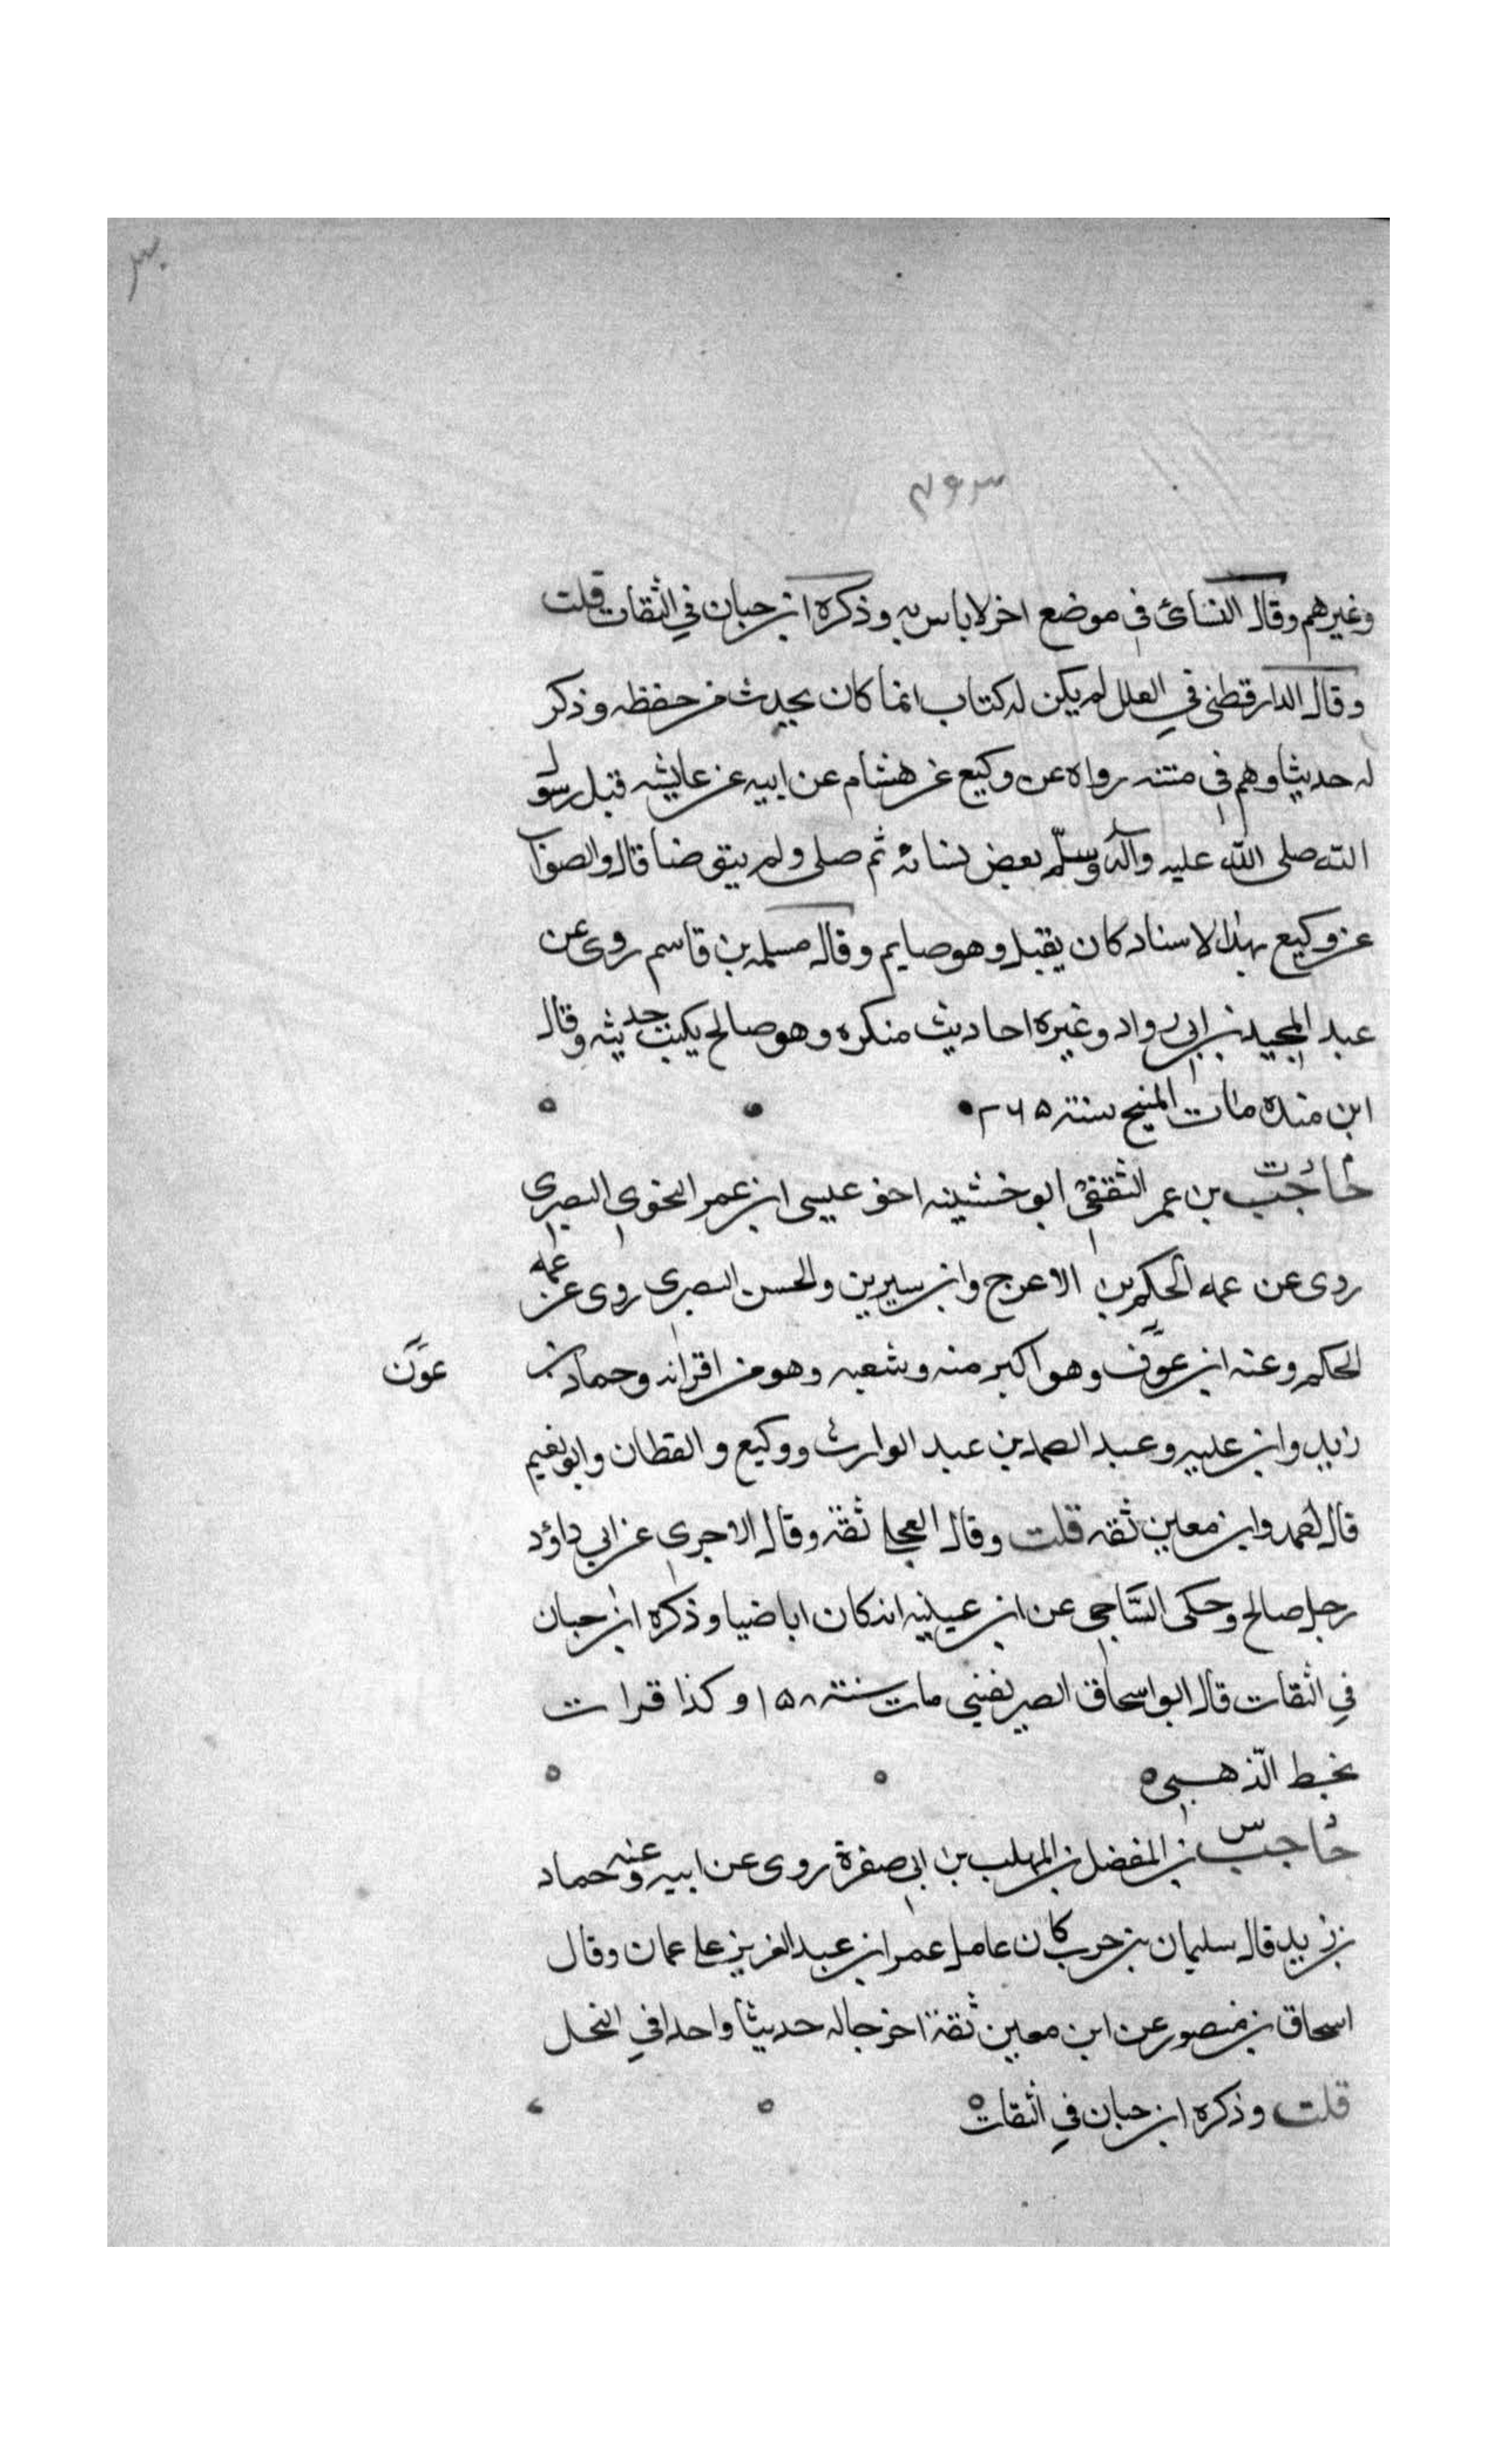 وغيرهم وقال النسائ في موضع اخر لا باس به وذكره ابن حبان في الثقات قلت
وقال الدارقطني في العلل لم يكن له كتاب انما كان يحدث من حفظه وذكر
له حديثا وهم في متنه رواه عن وكيع عن هشام عن ابيه عن عايشه قبل رسول
الله صلى الله عليه وآله وسلّم بعض نسائه ثم صلى ولم يتوضا قال والصواب
عن وكيع بهذا الاسناد كان يقبل وهو صايم وقال مسلمه بن قاسم روى عن
عبد المجيد بن ابي رواد وغيره احاديث منكره وهو صالح يكتب حديثه وقال
ابن منده مات المنبج سنة ٢٦٥
حاجب بن عمر الثقفي ابو خشينه اخو عيسى ابن عمر النحوي البصري
روى عن عمه الحكم بن الاعرج وابن سيرين والحسن البصري روى عن عمه
الحكم وعنه ابن عون وهو اكبر منه وشعبه وهو من اقرانه وحماد بن
عون
زيد وابن عليه وعبد الصمد بن عبد الوارث ووكيع والقطان وابو نعيم
قال احمد وابن معين ثقه قلت وقال العجلي ثقة وقال الاجري عن ابي داؤد
رجل صالح وحكى السّاجي عن ابن عيينه انه كان اباضيا وذكره ابن حبان
في الثقات قال ابو اسحاق الصريفيني مات سنة ١٥٨ وكذا قرات
بخط الذّهبي
حاجب س بن المفضل بن المهلب بن ابي صفرة روى عن ابيه وعنه حماد
بن زيد قال سليمان بن حرب كان عامل عمر ابن عبد العزيز على عمان وقال
اسحاق بن منصور عن ابن معين ثقة اخرجا له حديثا واحدا في النحل
قلت وذكره ابن حبان في الثقات